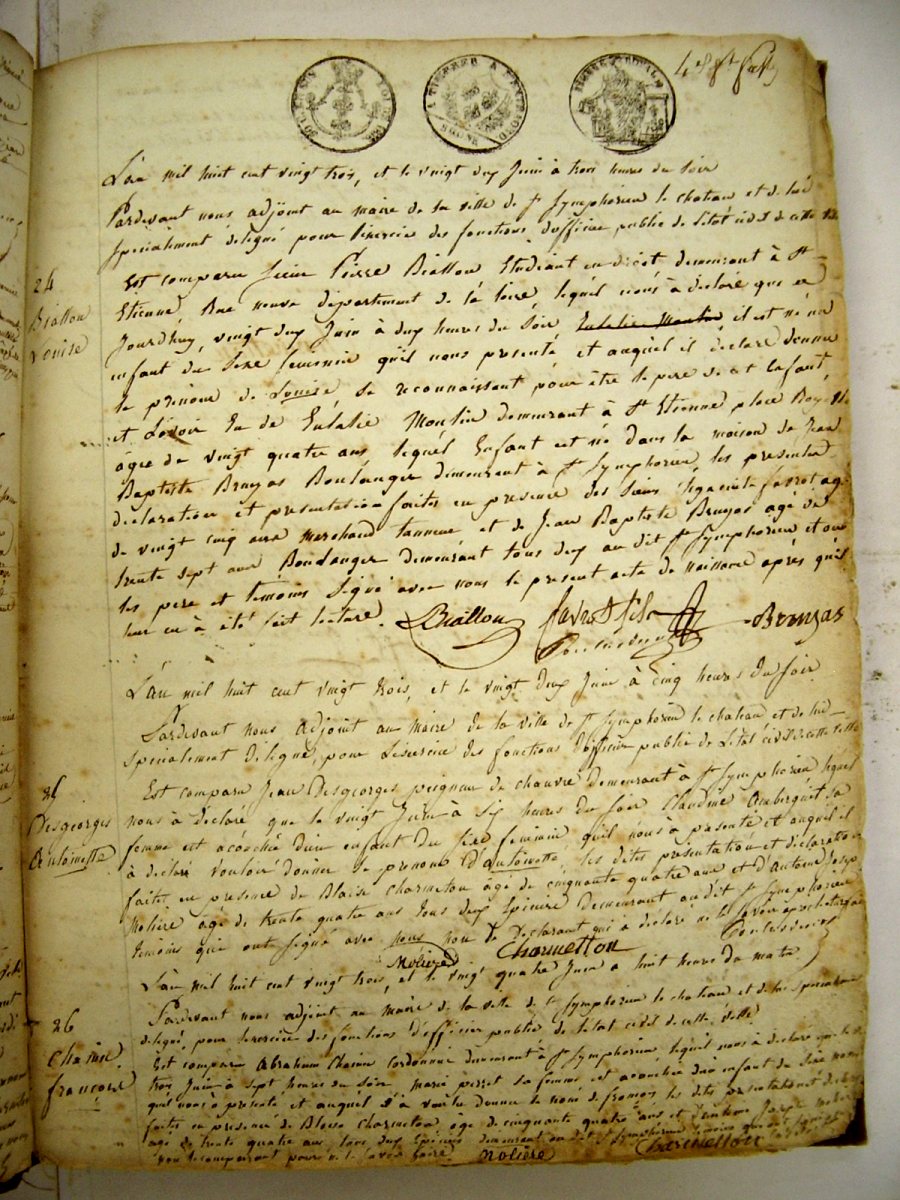 L'an mil huit cent vingt trois, et le vingt deux Juin à trois heures du soir
Pardevant nous adjoint au maire de la ville de St Symphorien le chateau et de lui
specialement deligné pour lexercice des fonctions d'officier public de l'état civil de cette ville
24
Biallon
Louise
Est comparu Pierre Biallon Etudiant en droit demeurant à St
Etienne, Rue neuve département de la loire, lequel nous à déclaré que ce
Jourdhuy, vingt deux Juin à deux heures du soir il est né un
enfant du sexe feminin qu'il nous presenté et auquel il declare donner
le prénom de Louise, se reconnaissant pour être le pere de cet Enfant,
et L'avoir Eu de Eulalie Moulin demeurant à St Etienne place
âgée de vingt quatre ans lequel Enfant est né dans la maison de Jean
Baptiste Bruyas Boulanger demeurant à St Symphorien, les presentes
declaration et presentation faites en presence des Sieurs
de vingt cinq ans marchand tanneur et de Jean Baptiste Bruyas agé de
trente sept ans Boulanger demeurant tous deux au dit St Symphorien et ont
les pere et temoins Signé avec nous le present acte de naissance après qu'il
leur en à été fait lecture. Biallon favrot fils Bruyas
L'an mil huit cent vingt trois, et le vingt deux Juin à cinq heures du soir
Pardevant nous adjoint au maire de la ville de St Symphorien le chateau et de lui
specialement deligné, pour lexercice des fonctions d'officier public de L'état civil de cette ville
25
Desgeorges
Antoinette
Est comparu Jean Desgeorges peigneur de chanvre demeurant à St Symphorien lequel
nous à déclaré que le vingt Juin à Six heures du soir Claudine sa
femme est acouchée d'un enfant du sexe feminin qu'il nous à presenté et auquel il
à declaré vouloir donner le prenom d'antoinette, les dites presentation et declaration
faites en presence de Blaise Charmetton âgé de cinquante quatre ans et d'Antoine Joseph
Molière âgé de trente quatre ans tous deux Epiciers demeurant au dit St Symphorien
temoins qui ont signé avec nous non le Declarant qui à declaré ne le savoir
Molière Charmetton
L'an mil huit cent vingt trois, et le vingt quatre Juin à huit heures du matin
Pardevant nous adjoint au maire de la ville de St Symphorien le chateau et de lui specialement
deligné, pour lexercice des fonctions d'officier public de l'etat civil de cette ville
26
Chaine
françois
Est comparu Abraham Chaine Cordonnier demeurant à St Symphorien, lequel nous à declaré que le
trois Juin à sept heures du soir marie perret sa femme est acouchée d'un enfant du sexe
qu'il nous à presenté et auquel il à voulu donner le nom de françois les dites presentation et
faites en presence de Blaise Charmetton, âgé de cinquante quatre ans et d'antoine Joseph
agé de trente quatre ans, tous deux Epiciers demeurant au dit St Symphorien temoins
non le comparant pour ne le savoir faire. Molière Charmetton